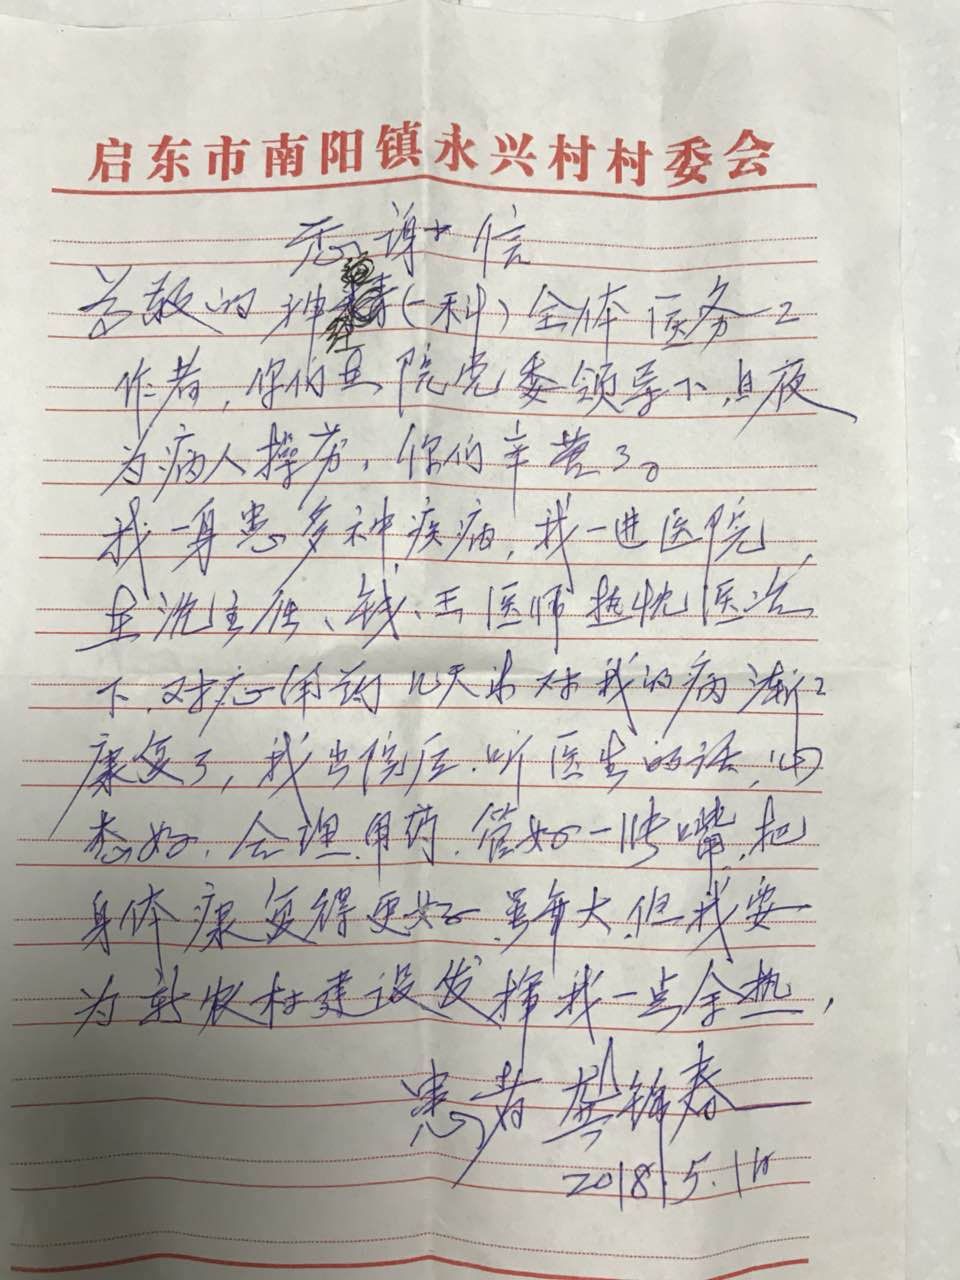 启东市南阳镇永兴村村委会
感谢信
尊敬的神经(一科)全体医务工
作者，你们在院党委领导下，日夜
为病人操劳，你们辛苦了。
我一身患多种疾病，我一进医院，
在沈主任、钱、王医师热忱医治
下，对症用药几天来对我的病渐渐
康复了，我出院后，听医生的话，心
态好，合理用药，管好一张嘴，把
身体康复得更好，虽年大，但我要
为新农村建设发挥我一点余热，
患者 龚锦春
2018.5.1